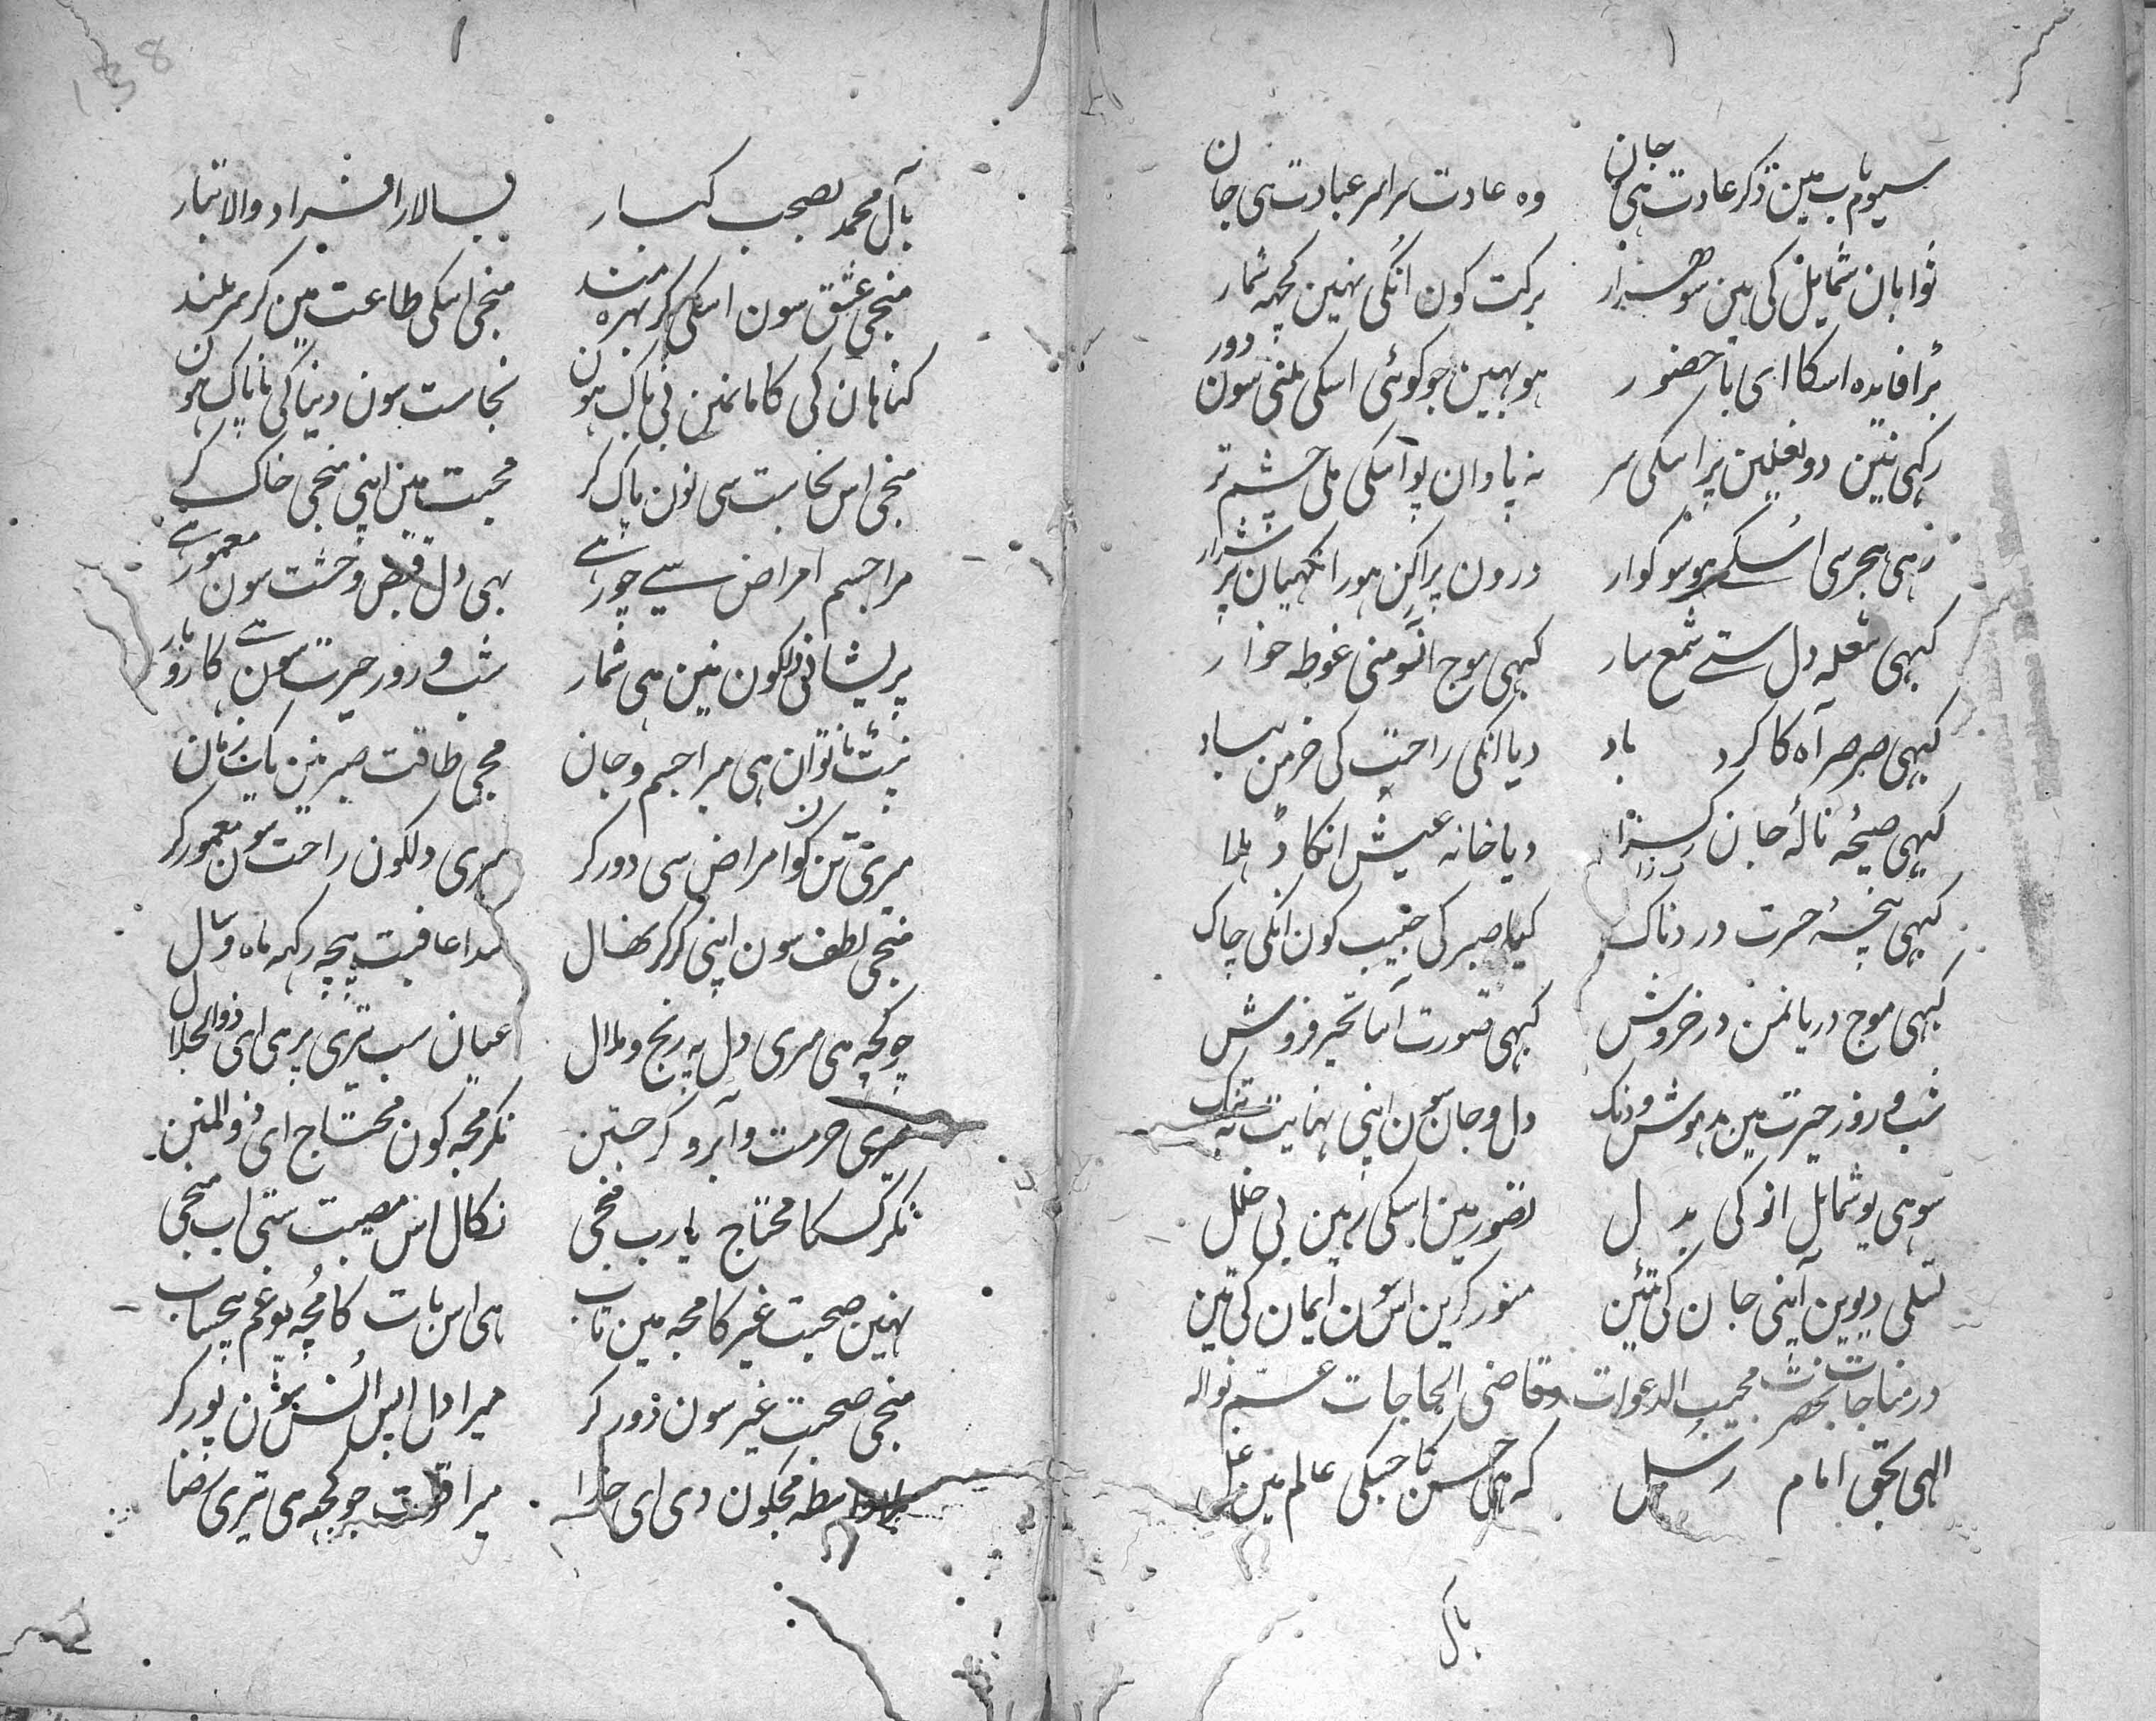 سیوم باب مین ذکر عادت ہی جان وہ عادت سراسر عبادت ہی جان
ثوابان شمایل کی ہین سو ہزار برکت کون انکی نہین کچہہ شمار
بڑا فایدہ اسکا ای با حضور ہو بہین جو کوئی اسکی ملنی سون دور
رکہی نین دو نعلین پر اسکی سر نہ پاوان پو اسکی ملی چشم تر
زہی ہجر سی اسکے ہو سوکوار درون پر اکن ہور انکہیان پر شرار
کبہی شعلہ دل ستے شمع سار کبہی موج انسو منی غوطہ خوار
کبہی صرصر آہ کا کرد باد دیا انکی راحت کی خرمن بباد
کبہی صیحہ نالۂ جان کزا دیا خانہ عیش انکا ڈہلا
کبہی پنجۂ حسرت دردناک کیا صبر کی جیب کون انکی چاک
کبہی موج دریا نمن در خروش کبہی صورت آسا تحیر فروش
شب و روز حیرت مین مدہوش و دنک دل و جان سون اپنی نہایت بہ تنک
سو ہی یو شمایل انو کی بدل تصور مین اسکی رہین بی خلل
تسلی دیوین آپنی جان کی تئین منور کرین اس سون ایمان کی تئین
در مناجات بحضرت مجیب الدعوات و قاضی الحاجات عم نوالہ
الہی بحق امام رسل کہ ہی حسن کا جسکی عالم مین غل
بآل
138
بآل محمد بصحب کبار بسالار افسر او والا تبار
منجی عشق سون اسکی کر بہرہ مند منجی اسکی طاعت مین کر سر بلند
کناہان کی کامان مین بی باک ہون نجاست سون دنیا کی ناپاک ہون
منجی اس نجاست سی تون پاک کر محبت مین اپنی منجی خاک کر
مرا جسم امراض سے چور ہے بہی دل قبض و وحشت سون معمور ہے
پریشانی دلکون نین ہی شمار شب و روز حیرت سون ہے کاروبار
نپٹ ناتوان ہی میرا جسم و جان مجی طاقت صبر نین یک زمان
مری تن کو امراض سی دور کر مری دلکون راحت سون معمور کر
منجی لطف سون اپنی کر کر نہال سدا عافیت بیچہ رکہہ ماہ و سال
جو کچہ ہی مری دل پہ رنج و ملال عیان سب تری پر ہی ای ذو الجلال
مری حرمت و آبرو کر جتن نکر مجہ کون محتاج ای ذو المنن
نکر کس کا محتاج یا رب منجی نکال اس مصیبت ستی اب منجی
نہین صحبت غیر کا مجہ مین تاب ہی اس بات کا مجہ یو غم بیحساب
منجی صحبت غیر سون دور کر میرا دل اپس انس سون پور کر
بلا واسطہ مجکون دی ای خدا میرا قوت جو کچہ ہی تیری رضا